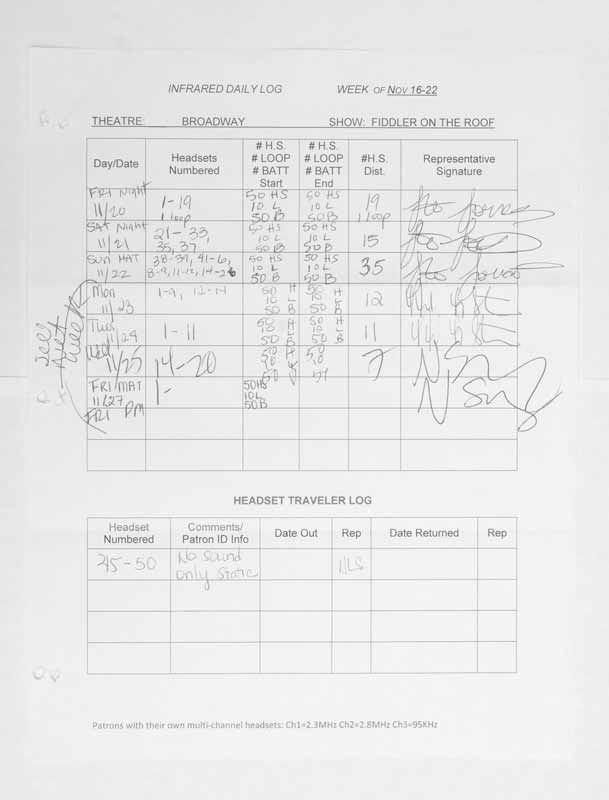 INFRARED DAILY LOG WEEK OF NOV 16-22
THEATRE: BROADWAY SHOW: FIDDLER ON THE ROOF
Day/Date Headsets Numbered # H.S. # LOOP # BATT Start # H.S. # LOOP # BATT End #H.S. Dist. Representative Signature
FRI Night 11/20 1-19 1 loop 50 HS 10 L 50 B 50 HS 10 L 50 B 19 1 loop
SAT Night 11/21 21-33, 35, 37 50 HS 10 L 50 B 50 HS 10 L 50 B 15
SUN MAT 11/22 38-39, 41-6, 8-9, 11-12, 14-26 50 HS 10 L 50 B 50 HS 10 L 50 B 35
Mon 11/23 1-9, 12-14 50 H 10 L 50 B 50 H 10 L 50 B 12
Tues 11/24 1-11 50 H 10 L 50 B 50 H 10 L 50 B 11
Wed 11/25 14-20 50 50 7
FRI MAT 11/27 1- 50HS 10L 50B
FRI PM
HEADSET TRAVELER LOG
Headset Numbered Comments/ Patron ID Info Date Out Rep Date Returned Rep
45-50 No Sound Only Static NLS
Patrons with their own multi-channel headsets: Ch1=2.3MHz Ch2=2.8MHz Ch3=95KHz